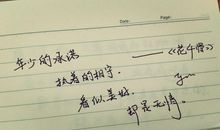 Date:
年少的承诺 ——《花千骨》
执着的相守.
看似美好.
却是无情。